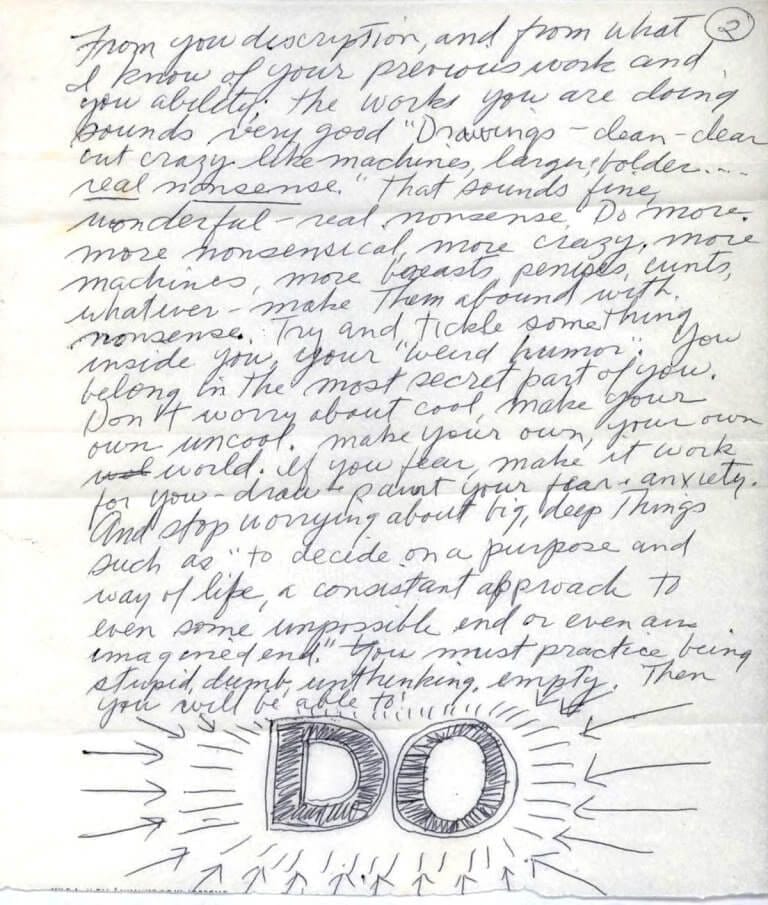 2
From you description, and from what
I know of your previous work and
you ability; the works you are doing
sounds very good "Drawings - clean - clear
but crazy like machines, larger, bolder....
real nonsense." That sounds fine,
wonderful - real nonsense. Do more.
more nonsensical, more crazy, more
machines, more breasts, penises, cunts,
whatever - make them abound with
nonsense. Try and tickle something
inside you, your "weird humor." You
belong in the most secret part of you.
Don't worry about cool, make your
own uncool. make your own, your own
world. If you fear, make it work
for you - draw + paint your fear + anxiety.
And stop worrying about big, deep things
such as "to decide on a purpose and
way of life, a consistant approach to
even some unpossible end or even an
imagined end." You must practice being
stupid, dumb, unthinking, empty. Then
you will be able to
DO